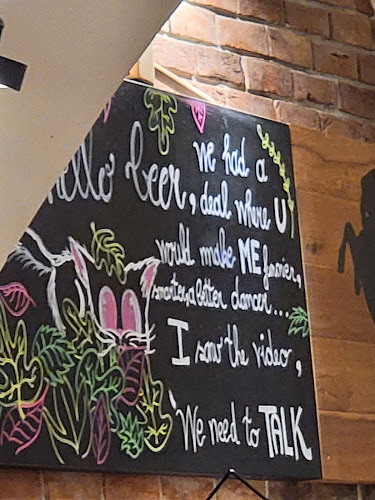 Hello beer, we had a
deal where U
would make ME funnier,
smarter, a better dancer...
I saw the video,
We need to TALK